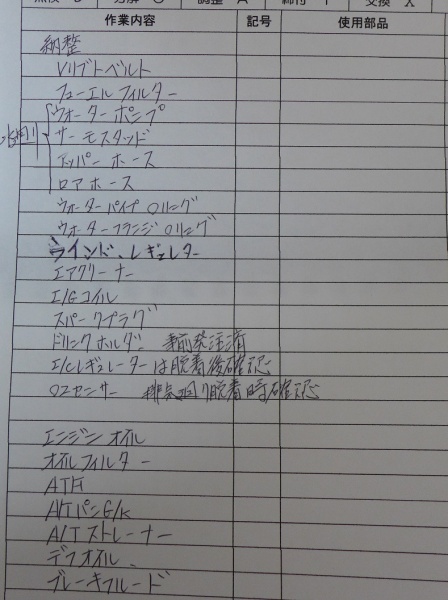 点検 分解 O 調整 A 締付 T 交換 X
作業内容 記号 使用部品
納整
Vリブトベルト
フューエルフィルター
ウォーターポンプ
サーモスタッド
アッパーホース
ロアホース
ウォーターパイプ Oリング
ウォーターフランジOリング
ウインド、レギュレター
エアクリーナー
E/Gコイル
スパークプラグ
ドリンクホルダー 事前発注済
E/Cレギュレーターは脱着後確認
O2センサー 排気回り脱着時確認
エンジンオイル
オイルフィルター
ATF
A/TパンG/K
A/Tストレーナー
デフオイル、
ブレーキフルード